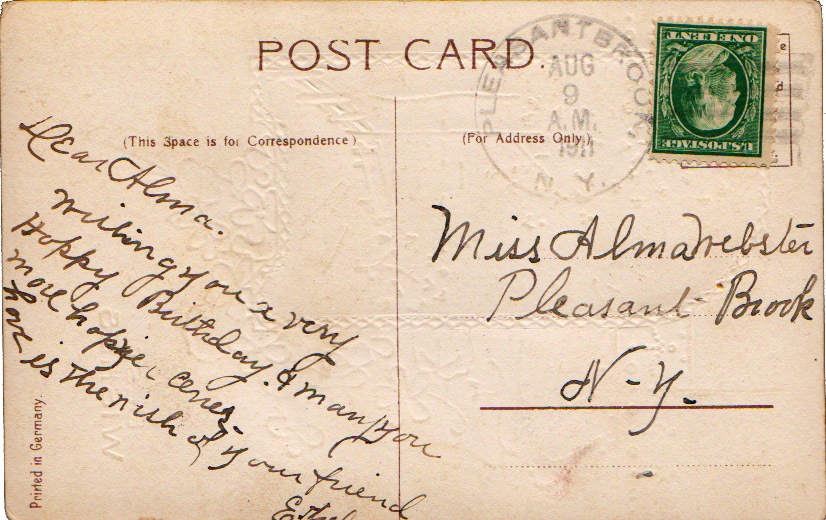 POST CARD.
PLEASANT BROOK
AUG
9
A.M.
1911
N. Y.
ONE CENT
U.S. POSTAGE
(This Space is for Correspondence)
(For Address Only.)
Dear Alma.
wishing you a very
Hoppy Birthday. & many you
more
is the wish of your friend
Miss Alma Webster
Pleasant Brook
N-Y.
Printed in Germany.